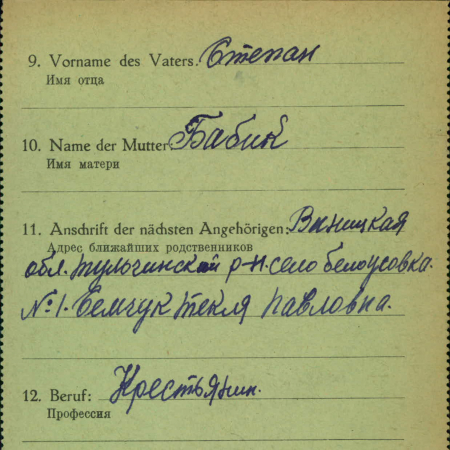 9. Vorname des Vaters: Степан
Имя отца
10. Name der Mutter: Бабик
Имя матери
11. Anschrift der nächsten Angehörigen: Виницкая
Адрес ближайших родственников
обл. тульчинский р-н. село белоусовка.
№1. Текля Павловна.
12. Beruf: Крестьянин.
Профессия